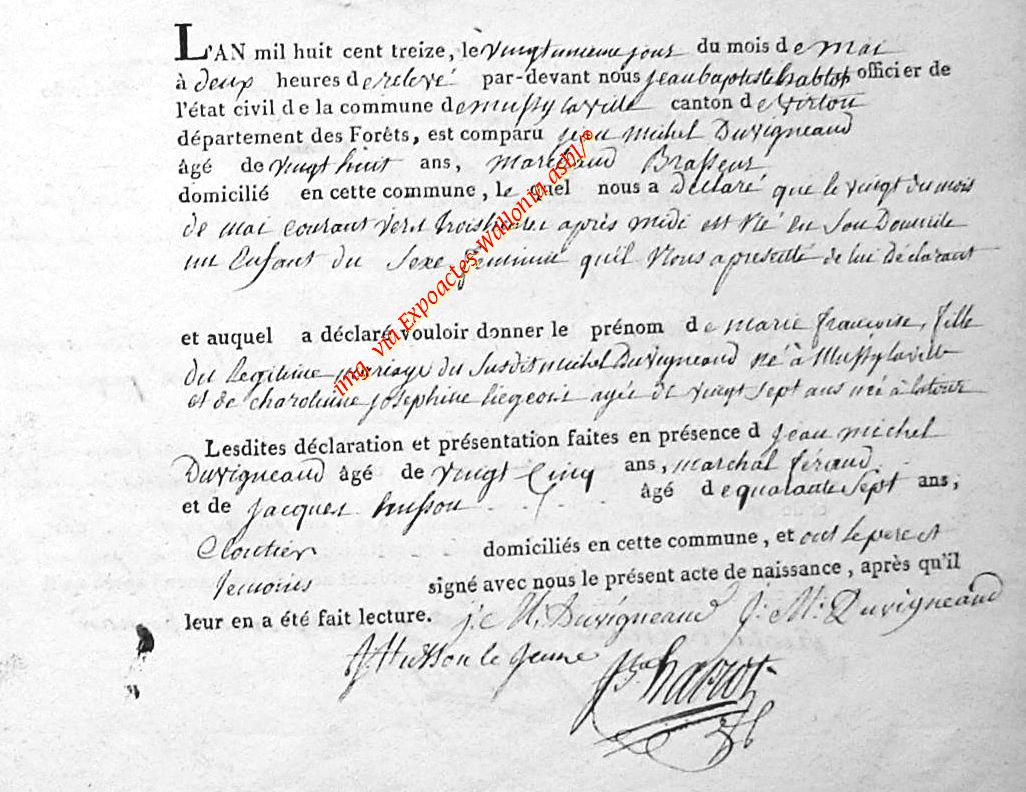 L'AN mil huit cent treize, le vingtunieme jour du mois de mai
à deux heures de relevé par-devant nous jean baptiste habtot officier de
l'état civil de la commune de mussy la ville canton de virtou
département des Forêts, est comparu jean michel Duvigneaud
âgé de vingt huit ans, Marchand Brasseur
domicilié en cette commune, le quel nous a Declaré que le vingt du mois
de mai courant vers trois heures après midi est Né en Son Domicile
un Enfant du Sexe feminin qu'il Nous a presenté de lui Declarant
et auquel a déclaré vouloir donner le prénom de marie françoise, fille
du Legitime mariage du Susdit michel Duvigneaud né à Mussy laville
et de charoline josephine liegeois agée de vingt sept ans née à latour
Lesdites déclaration et présentation faites en présence d jean michel
Duvigneaud âgé de vingt-Cinq ans, marchal féraud
et de jacques husson âgé de quarante Sept ans,
Cloutier domiciliés en cette commune, et ont le pere et
temoins signé avec nous le présent acte de naissance, après qu'il
leur en a été fait lecture. j. M. Duvigneaud J. M. Duvigneaud
J Husson le jeune
img. via Expoactes Wallonia asbl/®